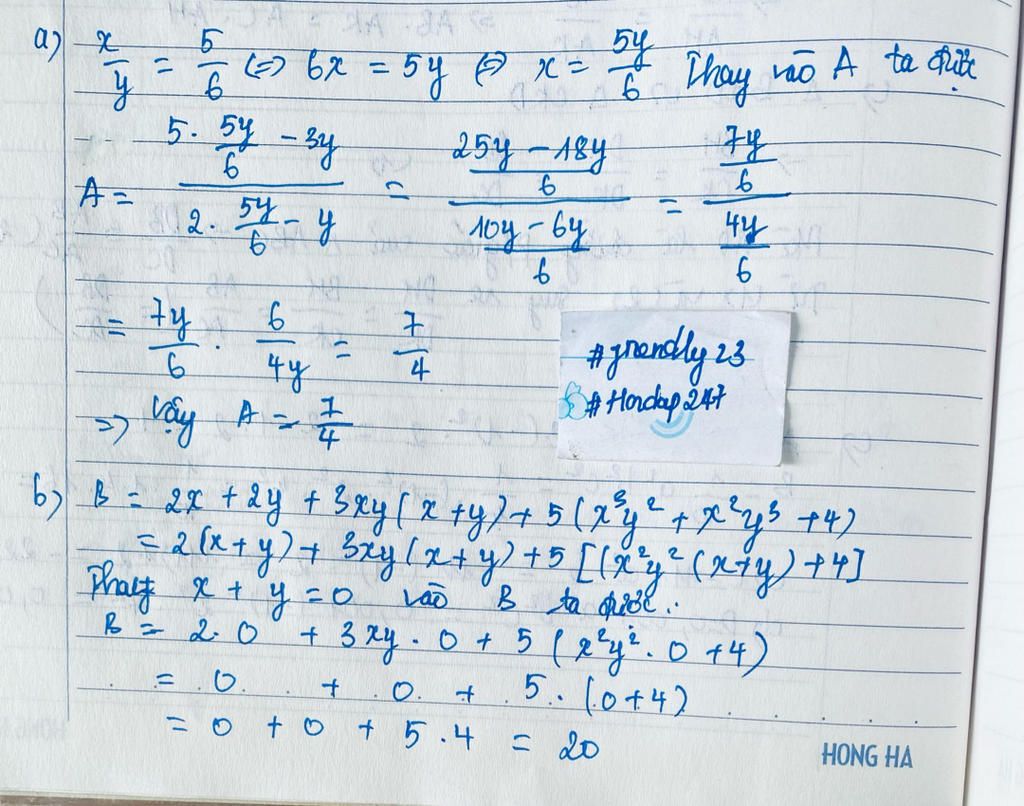 a) x/y = 5/6 <=> 6x = 5y <=> x = 5y/6 Thay vào A ta được
A = (5 . 5y/6 - 3y)/(2 . 5y/6 - y) = ((25y - 18y)/6)/((10y - 6y)/6) = (7y/6)/(4y/6)
= 7y/6 . 6/4y = 7/4
=> Vậy A = 7/4
#friendly23
#Hoidap247
b) B = 2x + 2y + 3xy(x+y) + 5(x³y² + x²y³ + 4)
= 2(x+y) + 3xy(x+y) + 5[(x²y²(x+y) + 4]
Thay x + y = 0 vào B ta được:
B = 2.0 + 3xy.0 + 5(x²y².0 + 4)
= 0 + 0 + 5.(0+4)
= 0 + 0 + 5.4 = 20
HONG HA